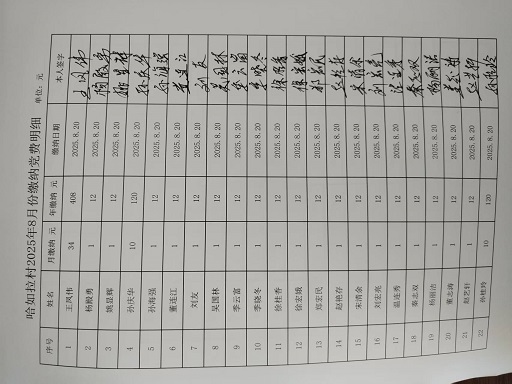 哈如拉村2025年8月份缴纳党费明细
单位：元
序号 姓名 月缴纳 元 年缴纳 元 缴纳日期 本人签字
1 王凤伟 34 408 2025.8.20 王凤伟
2 杨殿勇 1 12 2025.8.20 杨殿勇
3 姚显辉 1 12 2025.8.20 姚显辉
4 孙庆华 10 120 2025.8.20 孙庆华
5 孙海强 1 12 2025.8.20 孙海强
6 董连江 1 12 2025.8.20 董连江
7 刘友 1 12 2025.8.20 刘友
8 吴国林 1 12 2025.8.20 吴国林
9 李云富 1 12 2025.8.20 李云富
10 李晓冬 1 12 2025.8.20 李晓冬
11 徐桂香 1 12 2025.8.20 徐桂香
12 徐宏娥 1 12 2025.8.20 徐宏娥
13 郑宏民 1 12 2025.8.20 郑宏民
14 赵艳存 1 12 2025.8.20
15 宋清余 1 12 2025.8.20 宋清余
16 刘宏亮 1 12 2025.8.20 刘宏亮
17 温连秀 1 12 2025.8.20 温连秀
18 秦志双 1 12 2025.8.20 秦志双
19 杨丽洁 1 12 2025.8.20 杨丽洁
20 董志涛 1 12 2025.8.20 董志涛
21 赵艺轩 1 12 2025.8.20 赵艺轩
22 孙桂玲 10 120 2025.8.20 孙桂玲